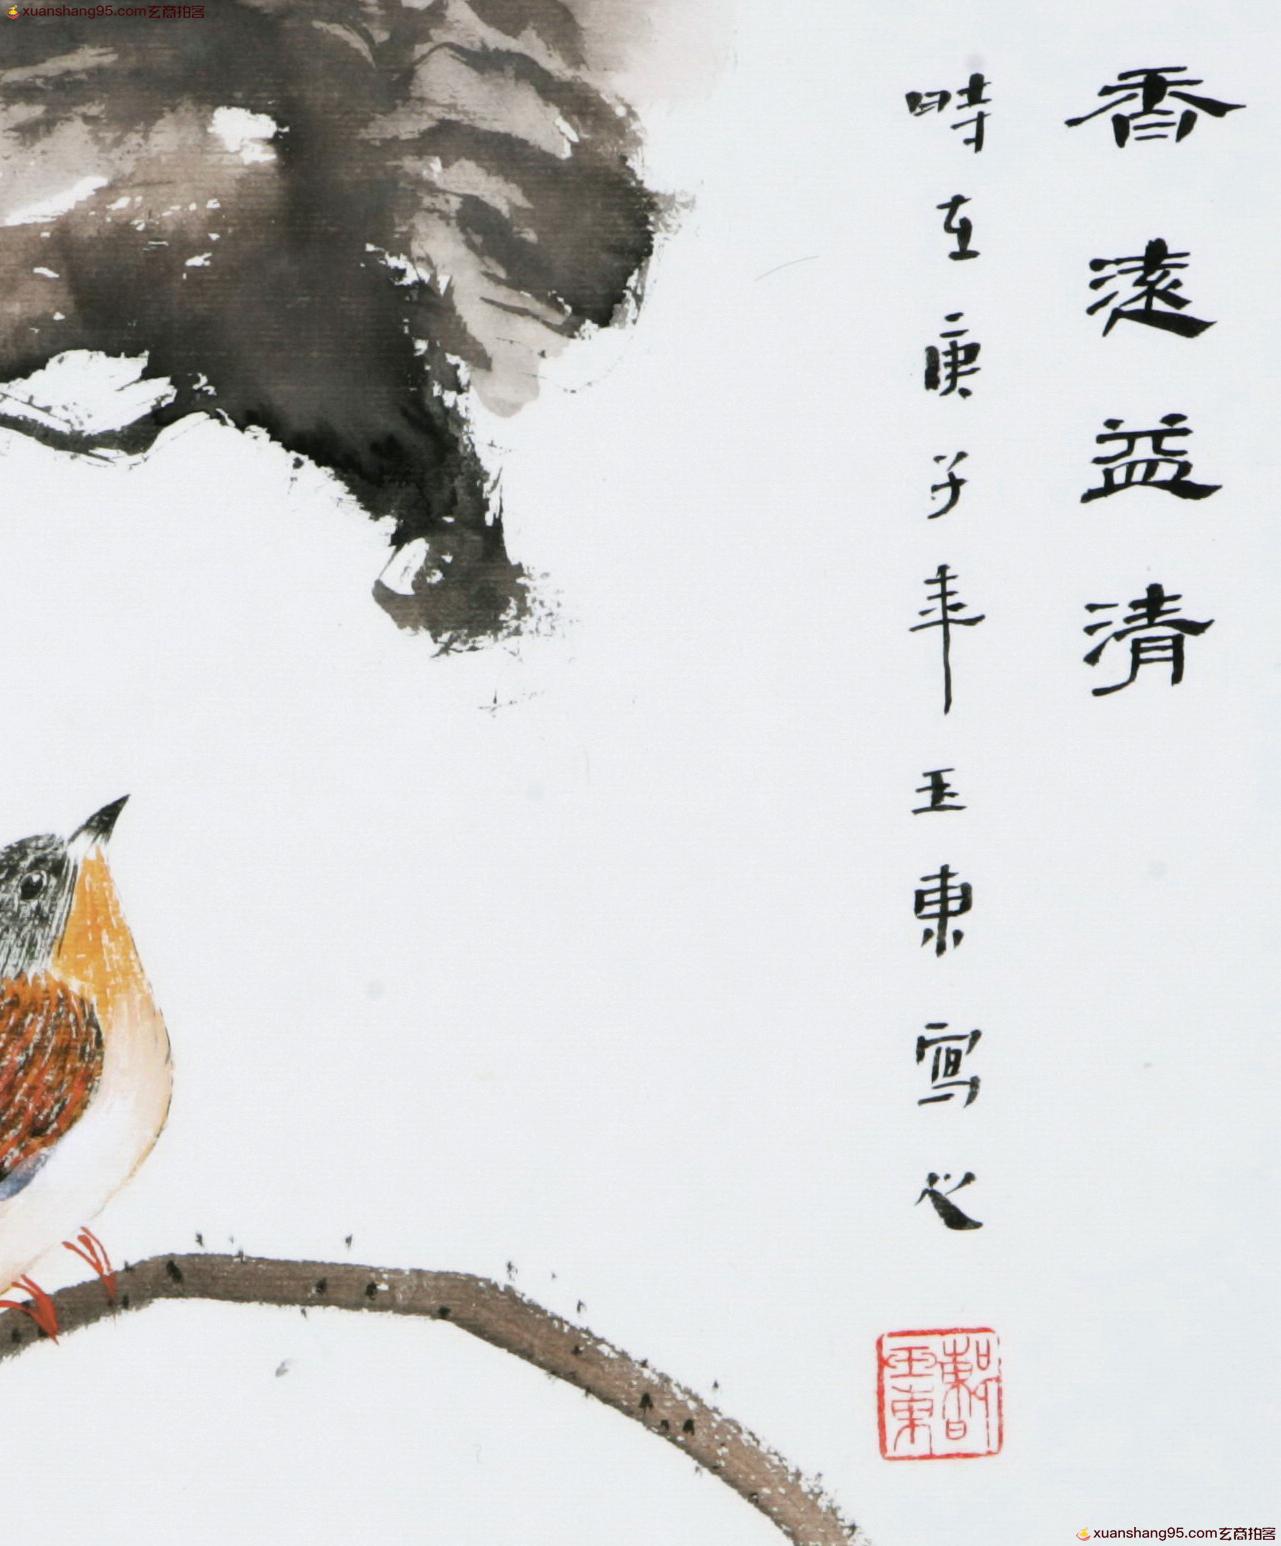 xuanshang95.com玄商拍客
香遠益清
時在庚子年玉東寫心
玉東
xuanshang95.com玄商拍客